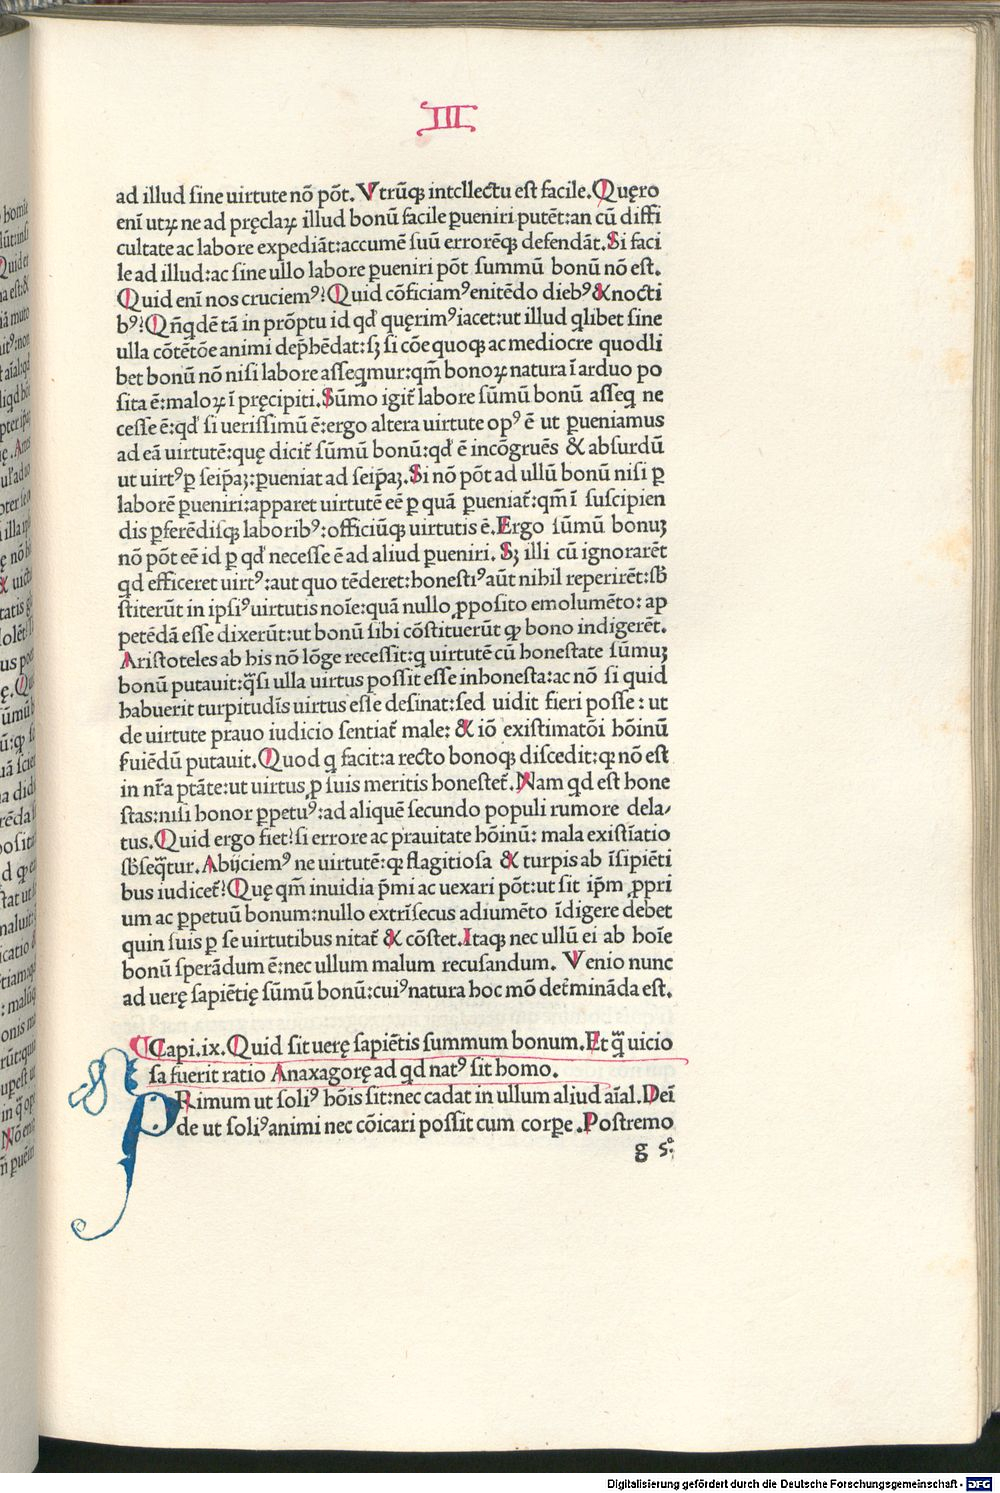 III
ad illud sine uirtute nõ põt. Vtrũq; intellectu est facile. Quęro
enĩ utꝝ ne ad pręclaꝝ illud bonũ facile ꝑueniri putẽt: an cũ diffi
cultate ac labore expediãt: accumẽ suũ errorẽq; defendãt. Si faci
le ad illud: ac sine ullo labore ꝑueniri põt summũ bonũ nõ est.
Quid enĩ nos cruciemꝰ? Quid cõficiamꝰ enitẽdo diebꝰ & nocti
bꝰ? Qñqdẽ tã in prõptu id qd̕ quęrimꝰ iacet: ut illud qlibet sine
ulla cõtẽtõe animi dep̃hẽdat: sꝫ si cõe quoq; ac mediocre quodli
bet bonũ nõ nisi labore asseqmur: qm̃ bonoꝝ natura ĩ arduo po
sita ẽ: maloꝝ ĩ pręcipiti. Sũmo igit̃ labore sũmũ bonũ asseq ne
cesse ẽ: qd̕ si uerissimũ ẽ: ergo altera uirtute opꝰ ẽ ut ꝑueniamus
ad eã uirtutẽ: quę dicit̃ sũmũ bonũ: qd̕ ẽ incõgruẽs & absurdũ
ut uirtꝰ ꝑ seip̃aꝫ: ꝑueniat ad seip̃aꝫ. Si nõ põt ad ullũ bonũ nisi ꝑ
laborẽ ꝑueniri: apparet uirtutẽ eẽ ꝑ quã ꝑueniat̃: qm̃ ĩ suscipien
dis ꝑferẽdisq; laboribꝰ: officiũq; uirtutis ẽ. Ergo sũmũ bonuꝫ
nõ põt eẽ id ꝑ qd̕ necesse ẽ ad aliud ꝑueniri. Sꝫ illi cũ ignorarẽt
qd efficeret uirtꝰ: aut quo tẽderet: honestiꝰ aũt nihil reperirẽt: sb̃
stiterũt in ipsiꝰ uirtutis noĩe: quã nullo ꝓposito emolumẽto: ap
petẽdã esse dixerũt: ut bonũ sibi cõstituerũt ꝙ bono indigerẽt.
Aristoteles ab his nõ lõge recessit: q uirtutẽ cũ honestate sũmuꝫ
bonũ putauit: q̃si ulla uirtus possit esse inhonesta: ac nõ si quid
habuerit turpitudĩs uirtus esse desinat: sed uidit fieri posse: ut
de uirtute prauo iudicio sentiat̃ male: & iõ existimatõi hõinũ
fuiẽdũ putauit. Quod q facit: a recto bonoq; discedit: ꝙ nõ est
in nr̃a ptãte: ut uirtus ꝓ suis meritis honestet̃. Nam qd est hone
stas: nisi honor ꝑpetuꝰ: ad aliquẽ secundo populi rumore dela⸗
tus. Quid ergo fiet? si errore ac prauitate hõinũ: mala existĩatio
sb̃seq̃tur. Abijciemꝰ ne uirtutẽ: ꝙ flagitiosa & turpis ab ĩsipiẽti
bus iudicet̃? Quę qm̃ inuidia p̃mi ac uexari põt: ut sit ip̃m ꝓpri
um ac ꝑpetuũ bonum: nullo extrĩsecus adiumẽto ĩdigere debet
quin suis ꝑ se uirtutibus nitat̃ & cõstet. Itaq; nec ullũ ei ab hoĩe
bonũ sperãdum ẽ: nec ullum malum recusandum. Venio nunc
ad uerę sapiẽtię sũmũ bonũ: cuiꝰ natura hoc mõ det̃minãda est.
Capi. ix. Quid sit uerę sapiẽtis summum bonum. Et q̃ uicio
sa fuerit ratio Anaxagorę ad qd natꝰ sit homo.
PRimum ut soliꝰ hõis sit: nec cadat in ullum aliud aĩal. Deĩ
de ut soliꝰ animi nec cõicari possit cum corꝑe. Postremo
g 5.